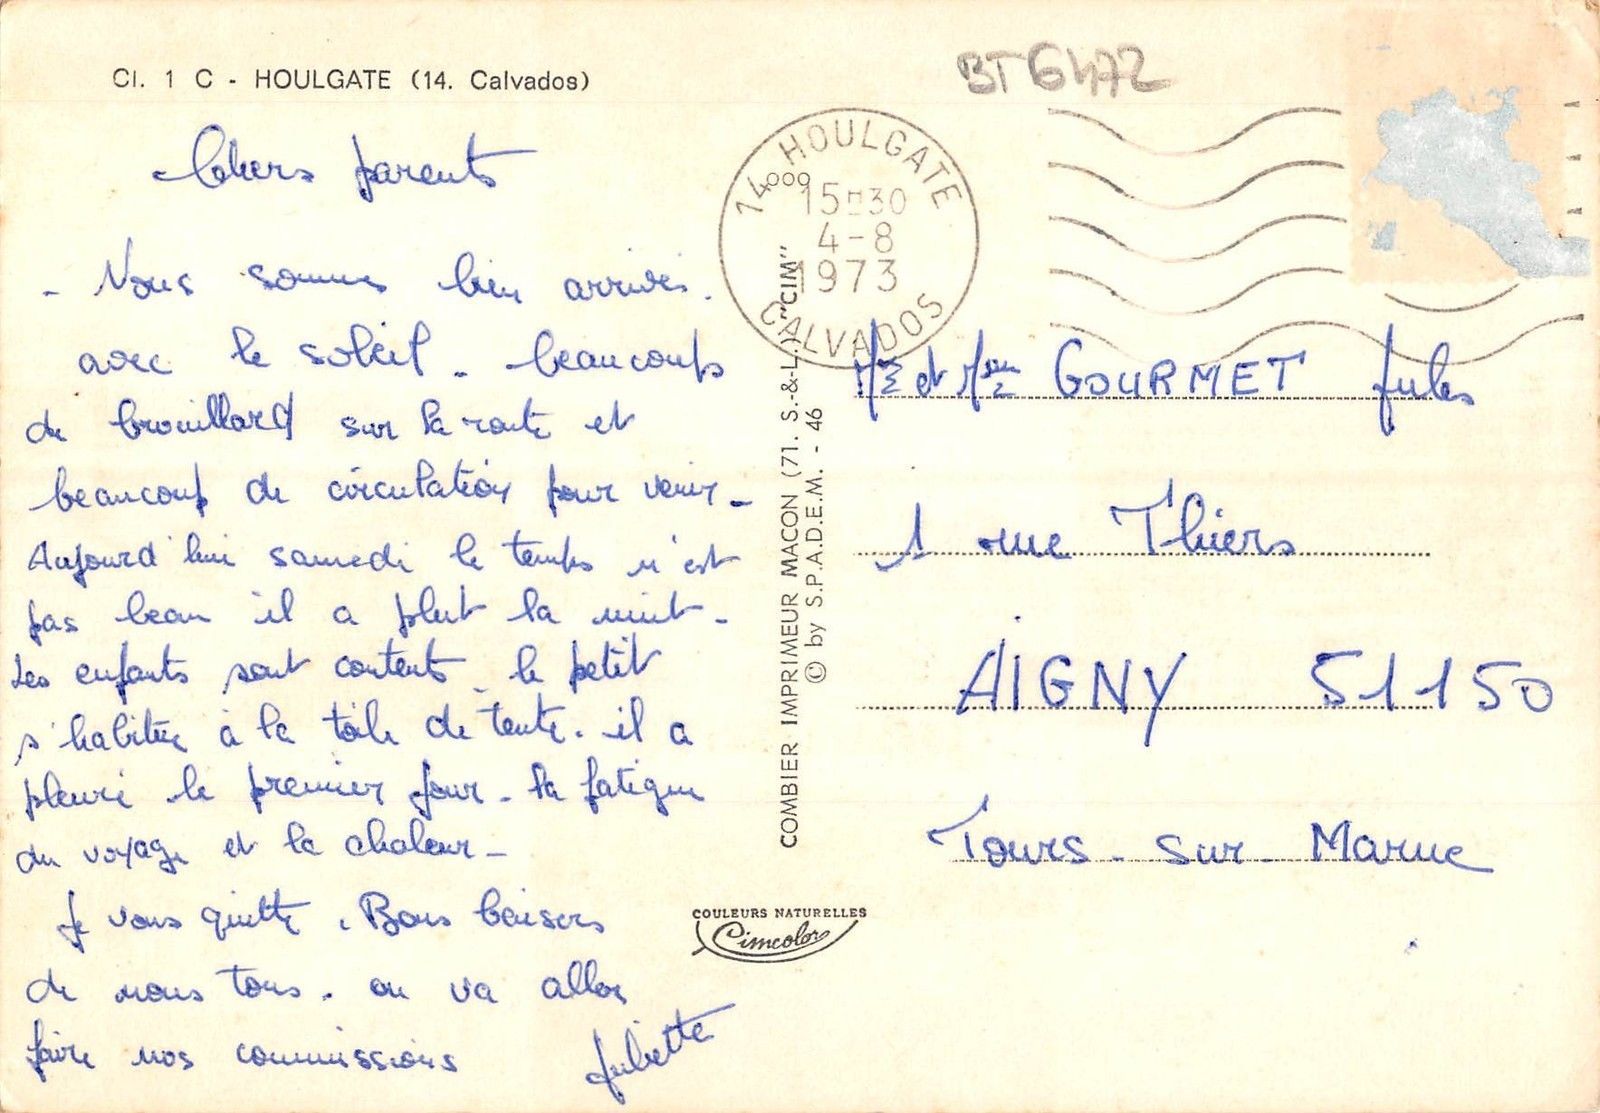 Cl. 1 C - HOULGATE (14. Calvados)
BT6472
14 HOULGATE
000
15 30
4-8
1973
CALVADOS
Chers parents
- Nous sommes bien arrivés.
avec le soleil - beaucoups
de brouillard sur la route et
beaucoup de circulation pour venir -
Aujourd'hui samedi le temps n'est
pas beau il a plut la nuit -
Les enfants sont contents - le petit
s'habitue à la toile de tente. il a
pleuré le premier jour - la fatigue
du voyage et la chaleur -
Je vous quitte. Bons baisers
de nous tous. on va aller
faire nos commissions
Juliette
COMBIER IMPRIMEUR MACON (71. S.-&-L.) "CIM"
© by S.P.A.D.E.M. - 46
COULEURS NATURELLES
Cimcolor
et GOURMET Jules
1 rue Thiers
AIGNY 51150
Tours - sur - Marne